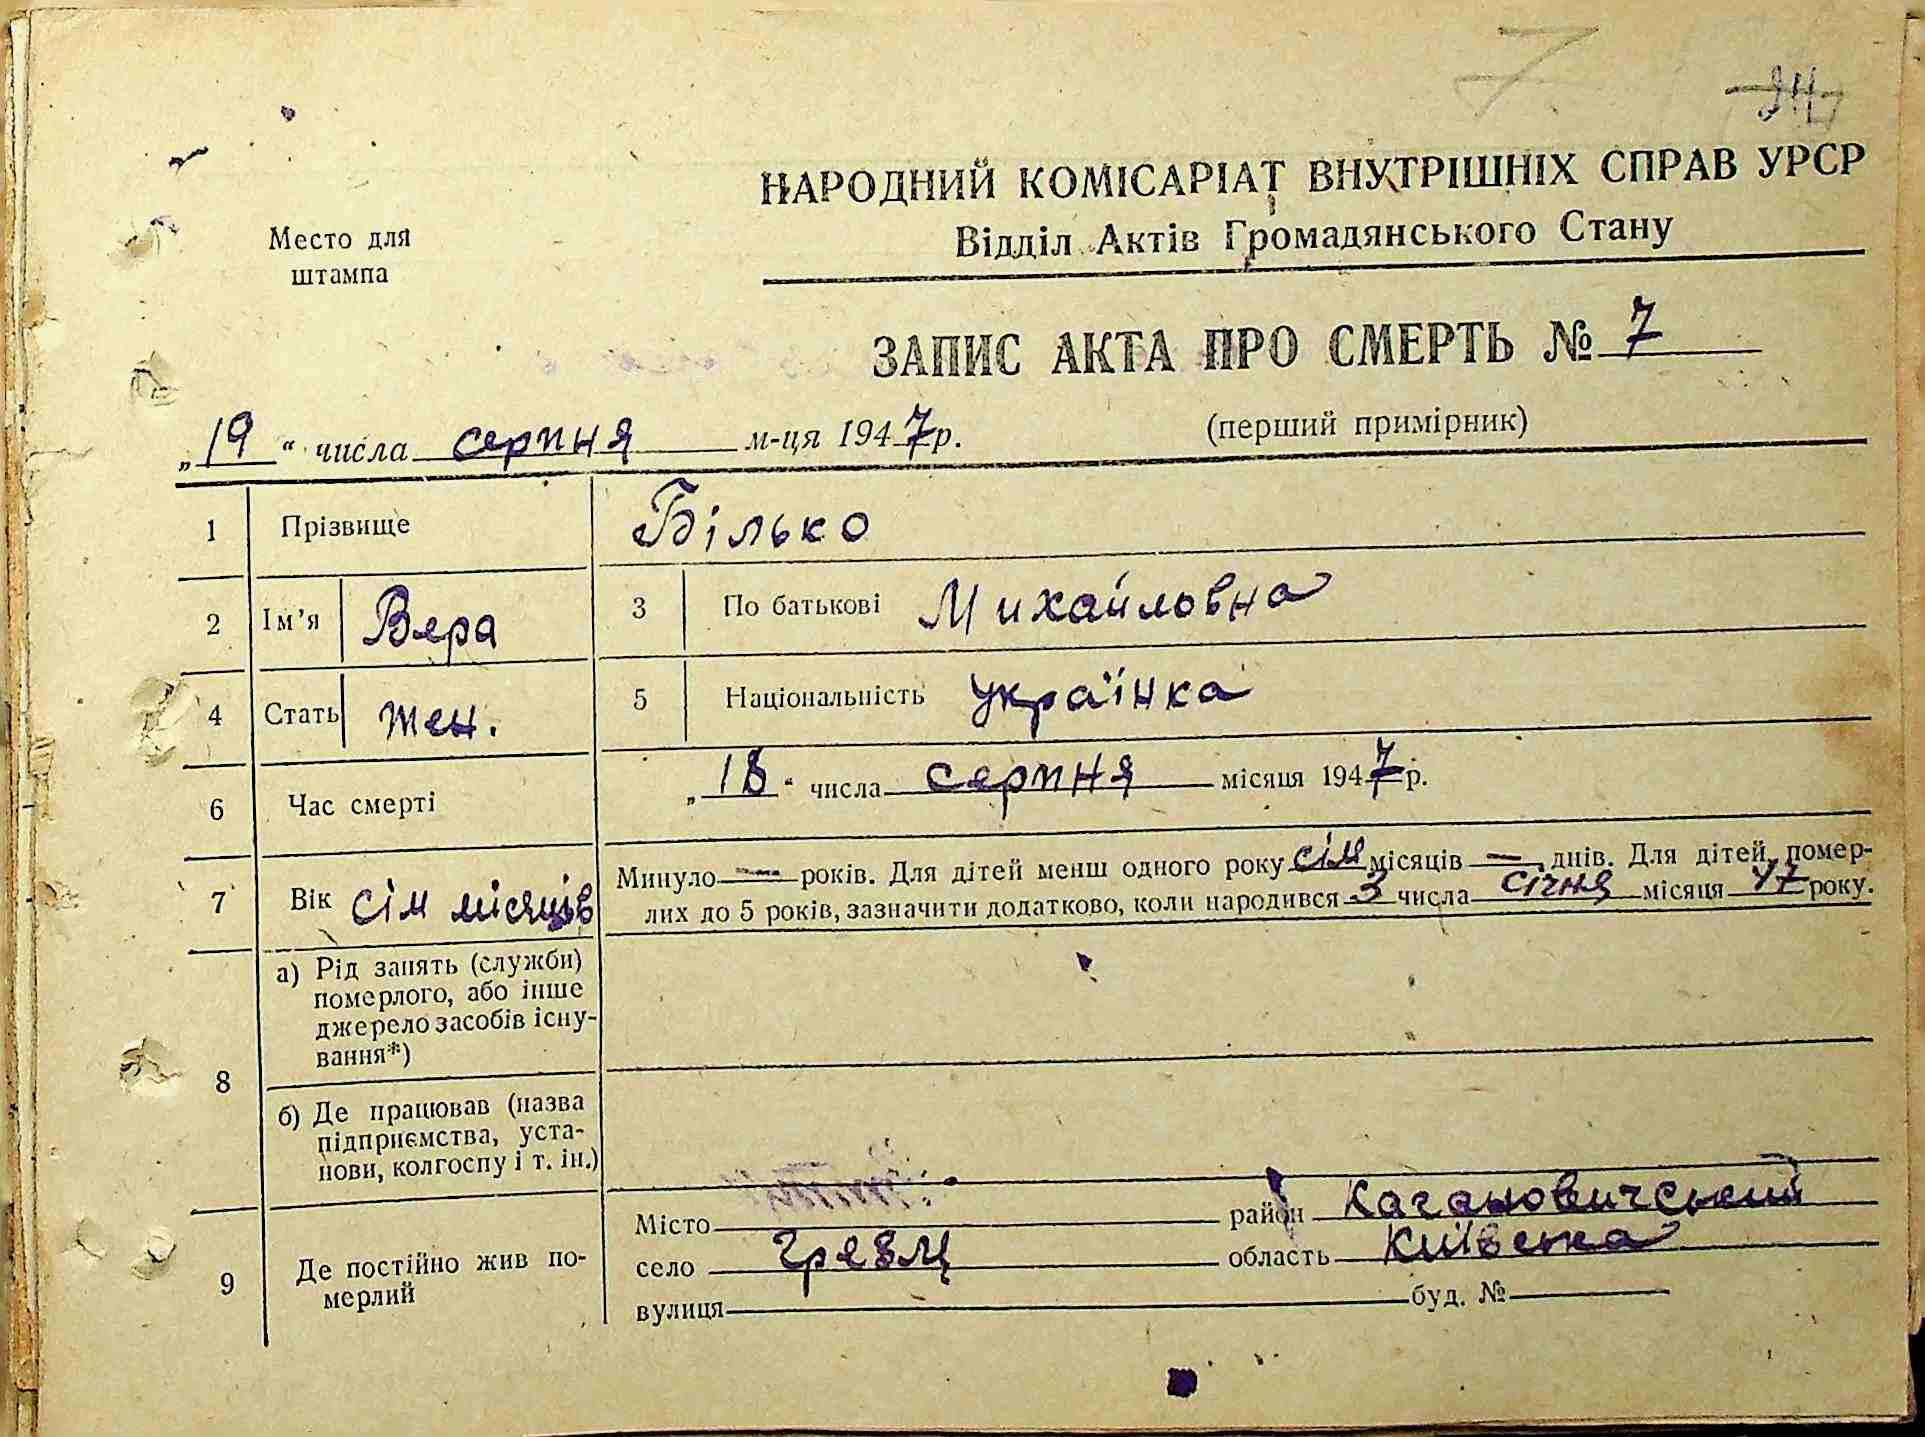 7
НАРОДНИЙ КОМІСАРІАТ ВНУТРІШНІХ СПРАВ УРСР
Відділ Актів Громадянського Стану
Место для
штампа
ЗАПИС АКТА ПРО СМЕРТЬ № 7
„19“ числа серпня м-ця 1947 р.
(перший примірник)
1 Прізвище Білько
2 Ім'я Вера 3 По батькові Михайловна
4 Стать жен. 5 Національність українка
6 Час смерті „18“ числа серпня місяця 1947 р.
7 Вік сім місяців Минуло — років. Для дітей менш одного року сім місяців — днів. Для дітей, помер-
лих до 5 років, зазначити додатково, коли народився 3 числа січня місяця 47 року.
8 а) Рід занять (служби)
померлого, або інше
джерело засобів існу-
вання*)
б) Де працював (назва
підприємства, уста-
нови, колгоспу і т. ін.)
9 Де постійно жив по-
мерлий
Місто район Кагановичський
село Грезля область Київська
вулиця буд. №